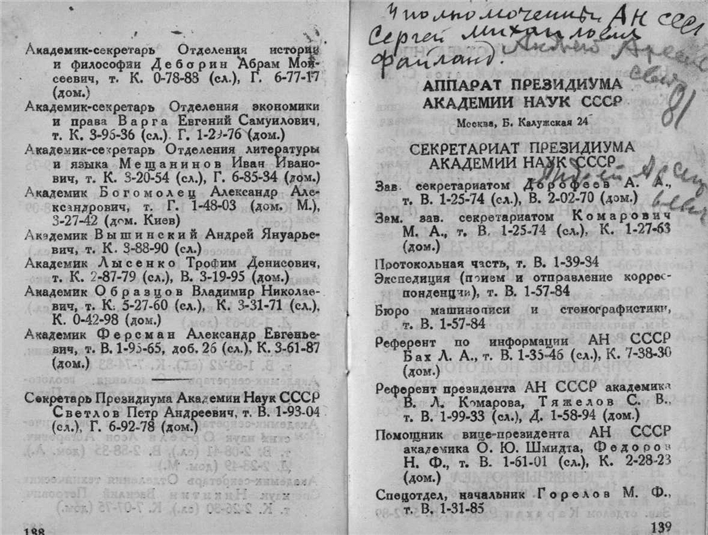 Академик-секретарь Отделения истории
и философии Деборин Абрам Мои-
сеевич, т. К. 0-78-83 (сл.), Г. 6-77-17
(дом.)
Академик-секретарь Отделения экономики
и права Варга Евгений Самуилович,
т. К. 3-95-36 (сл.). Г. 1-29-76 (дом.)
Академик-секретарь Отделения литературы
и языка Мещанинов Иван Ивано-
вич, т. К. 3-20-54 (сл.), Г. 6-85-34 (дом.)
Академик Богомолец Александр Але-
ксандрович, т. Г. 1-48-03 (дом. М.),
3-27-42 (дом. Киев)
Академик Вышинский Андрей Януарье-
вич, т. К. 3-88-90 (сл.)
Академик Лысенко Трофим Денисович,
т. К. 2-87-79 (сл.), В. 3-19-95 (дом.)
Академик Образцов Владимир Николае-
вич, т. К. 5-27-60 (сл.), К. 3-31-71 (сл.),
К. 0-42-98 (дом.)
Академик Ферсман Александр Евгенье-
вич, т. В. 1-95-65, доб. 26 (сл.), К. 3-61-87
(дом.)
Секретарь Президиума Академии Наук СССР
Светлов Петр Андреевич, т. В. 1-93-04
(сл.), Г. 6-92-78 (дом.)
188
Уполномоченный АН СССР
Сергей Михайлович
Файланд.
АППАРАТ ПРЕЗИДИУМА
АКАДЕМИИ НАУК СССР
Москва, Б. Калужская 24
СЕКРЕТАРИАТ ПРЕЗИДИУМА
АКАДЕМИИ НАУК СССР
Зав. секретариатом Дорофеев А. А.,
т. В. 1-25-74 (сл.), В. 2-02-70 (дом.)
Зам. зав. секретариатом Комарович
М. А., т. В. 1-25-74 (сл.), К. 1-27-63
(дом.)
Протокольная часть, т. В. 1-39-34
Экспедиция (прием и отправление коррес-
понденции), т. В. 1-57-84
Бюро машинописи и стенографистки,
т. В. 1-57-84
Референт по информации АН СССР
Бах Л. А., т. В. 1-35-46 (сл.), К. 7-38-30
(дом.)
Референт президента АН СССР академика
В. Л. Комарова, Тяжелов С. В.,
т. В. 1-99-33 (сл.), Д. 1-58-94 (дом.)
Помощник вице-президента АН СССР
академика О. Ю. Шмидта, Федоров
Н. Ф., т. В. 1-61-01 (сл.), К. 2-28-23
(дом.)
Спецотдел, начальник Горелов М. Ф.,
т. В. 1-31-85
139